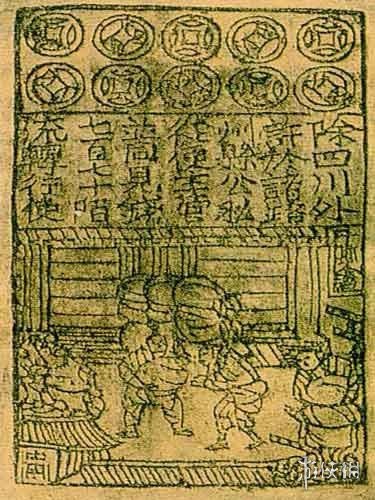 除四川外
許於諸路
州縣公私
從便主管
並同見錢
七百七十陌
流轉行使
游侠网